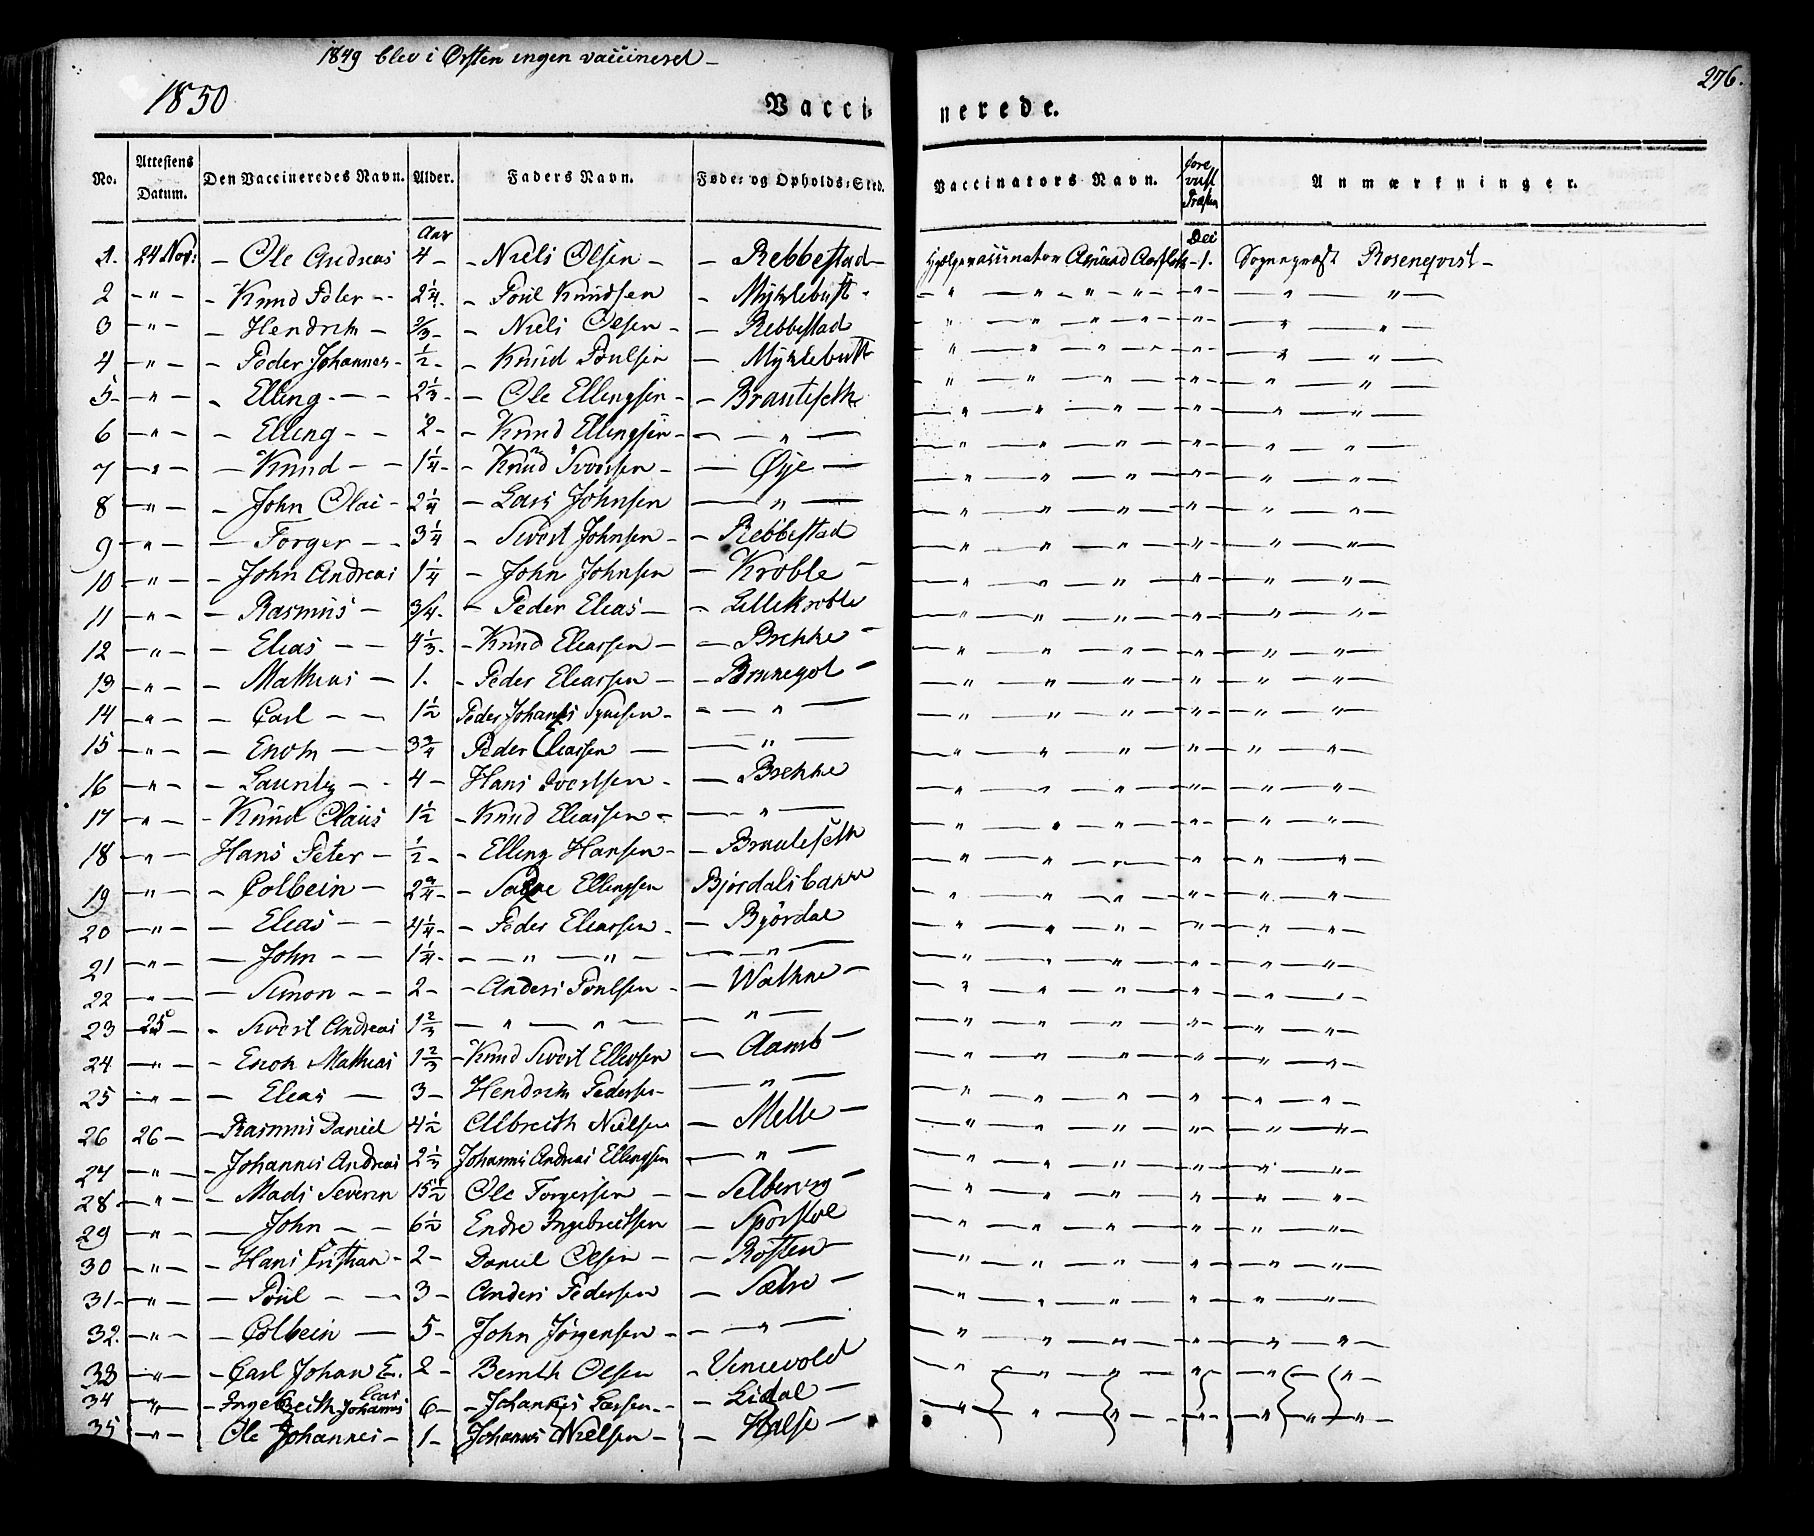 1849 blev i Ørsten ingen vaccineret -
276.
1850
Vaccinerede.
No. Attestens Datum. Den Vaccineredes Navn. Alder. Faders Navn. Føde- og Opholds-Sted. Vaccinators Navn. Anmærkninger.
Aar
1. 24 Nov: - Ole Andreas 4 - - Niels Olsen - - Rebbestad - Hjælpevaccinator - 1. Sognepræst Rosenqvist -
2 - " - - Knud Peter - - 2 1/4 - - Poul Knudsen - Myklebust - - " - " - " - " - - " - - " - " -
3 - " - - Hendrik - 2/3 - - Niels Olsen - - Rebbestad - " - " - " - " - - " - - " - " -
4 - " - - Peder Johannes - 1/2 - - Knud Poulsen - Myklebust - " - " - " - " - - " - - " - " -
5 - - " - - Elling - - - 2 1/3 - - Ole Ellingsen - - Brauteseth - " - " - " - " - - " - - " - " -
6 - " - - Elling - - 2 - - Knud Ellingsen - - - " - - " - " - " - " - - " - - " - " -
7 - " - - Knud - - 1 1/4 - - Knud Sivertsen - - Øye - - " - " - " - " - - " - - " - " -
8 - " - - John Olai - 2 1/4 - Lars Johnsen - " - - " - " - " - " - - " - - " - " -
9 - " - - Torger - - 3 1/4 - Sivert Johnsen - - Rebbestad - " - " - " - " - - " - - " - " -
10 - " - - John Andreas 1 1/4 - John Johnsen - Krøble - - " - " - " - " - - " - - " - " -
11 - " - - Rasmus - 3/4 - - Peder Elias - - Lillekrøble - " - " - " - " - - " - - " - " -
12 - " - - Elias - - 4 1/3 - - Knud Eliassen - - Brekke - - " - " - " - " - - " - - " - " -
13 - " - - Mathias - 1. - Peder Eliassen - - Brunegot - - " - " - " - " - - " - - " - " -
14 - " - - Carl - - 1 1/2 Peder Johannes Synesen - - " - - " - " - " - " - - " - - " - " -
15 - " - - Enok - 3 3/4 Peder Eliassen - - " - - " - " - " - " - - " - - " - " -
16 - " - - Lauritz - - 4 - Hans Ivertsen - - Brekke - " - " - " - " - - " - - " - " -
17 - " - - Knud Claus 1 1/2 - Knud Eliassen - - " - - " - " - " - " - - " - - " - " -
18 - " - Hans Peter - 1/2 - - Elling Hansen - - Brauteseth - " - " - " - " - - " - - " - " -
19 - " - - Colbein - 2 3/4 - - Ellingsen Bjørdalsbakke - " - " - " - " - - " - - " - " -
20 - " - - Elias - - 4 1/4 - - Peder Eliassen - - Bjørdal - " - " - " - " - - " - - " - " -
21 - " - - John - - 1 1/4 - - " - " - - " - - " - " - " - " - - " - - " - " -
22 - " - - Simon - - 2 - - Anders Poulsen - - Watkne - - " - " - " - " - - " - - " - " -
23 25 - - Sivert Andreas 1 2/3 - " - " - - " - - " - " - " - " - - " - - " - " -
24 - " - - Enok Mathias 1 2/3 - Knud Sivert Ellevsen - Aamb - - " - " - " - " - - " - - " - " -
25 - " - - Elias - 3 - Hendrik Pedersen - - " - - " - " - " - " - - " - - " - " -
26 26 - - Rasmus Daniel 4 1/2 Elbreith Nielsen - Melle - - " - " - " - " - - " - - " - " -
27 - " - - Johannes Andreas 2 1/3 Johannes Andreas Ellingsen - " - - " - " - " - " - - " - - " - " -
28 - " - - Mads Severin 15 1/2 Ole Torgersen - - Selbererg - - " - " - " - " - - " - - " - " -
29 - " - - John - - 6 1/2 Endre Ingebreitsen - - " - " - " - " - - " - - " - " -
30 - " - - Hans Cristian - 2 - Daniel Olsen - - Røsten - - " - " - " - " - - " - - " - " -
31 - - " - - Poul - - 3 - Anders Pedersen - Sætre - - " - " - " - " - - " - - " - " -
32. - " - - Colbein - 5 - John Jørgensen - - " - - " - " - " - " - - " - - " - " -
33 - " - - Carl Johan E. 2 - Bernth Olsen - Vinievold - " - " - " - - " - " -
34 - " - - Ingebreith Johannes 6 - - Johannes Larsen - - Lidal - - " - " - " - - " - " - " - " -
35 - " - Ole Johannes - 1 - Johannes Nielsen - - Halse -